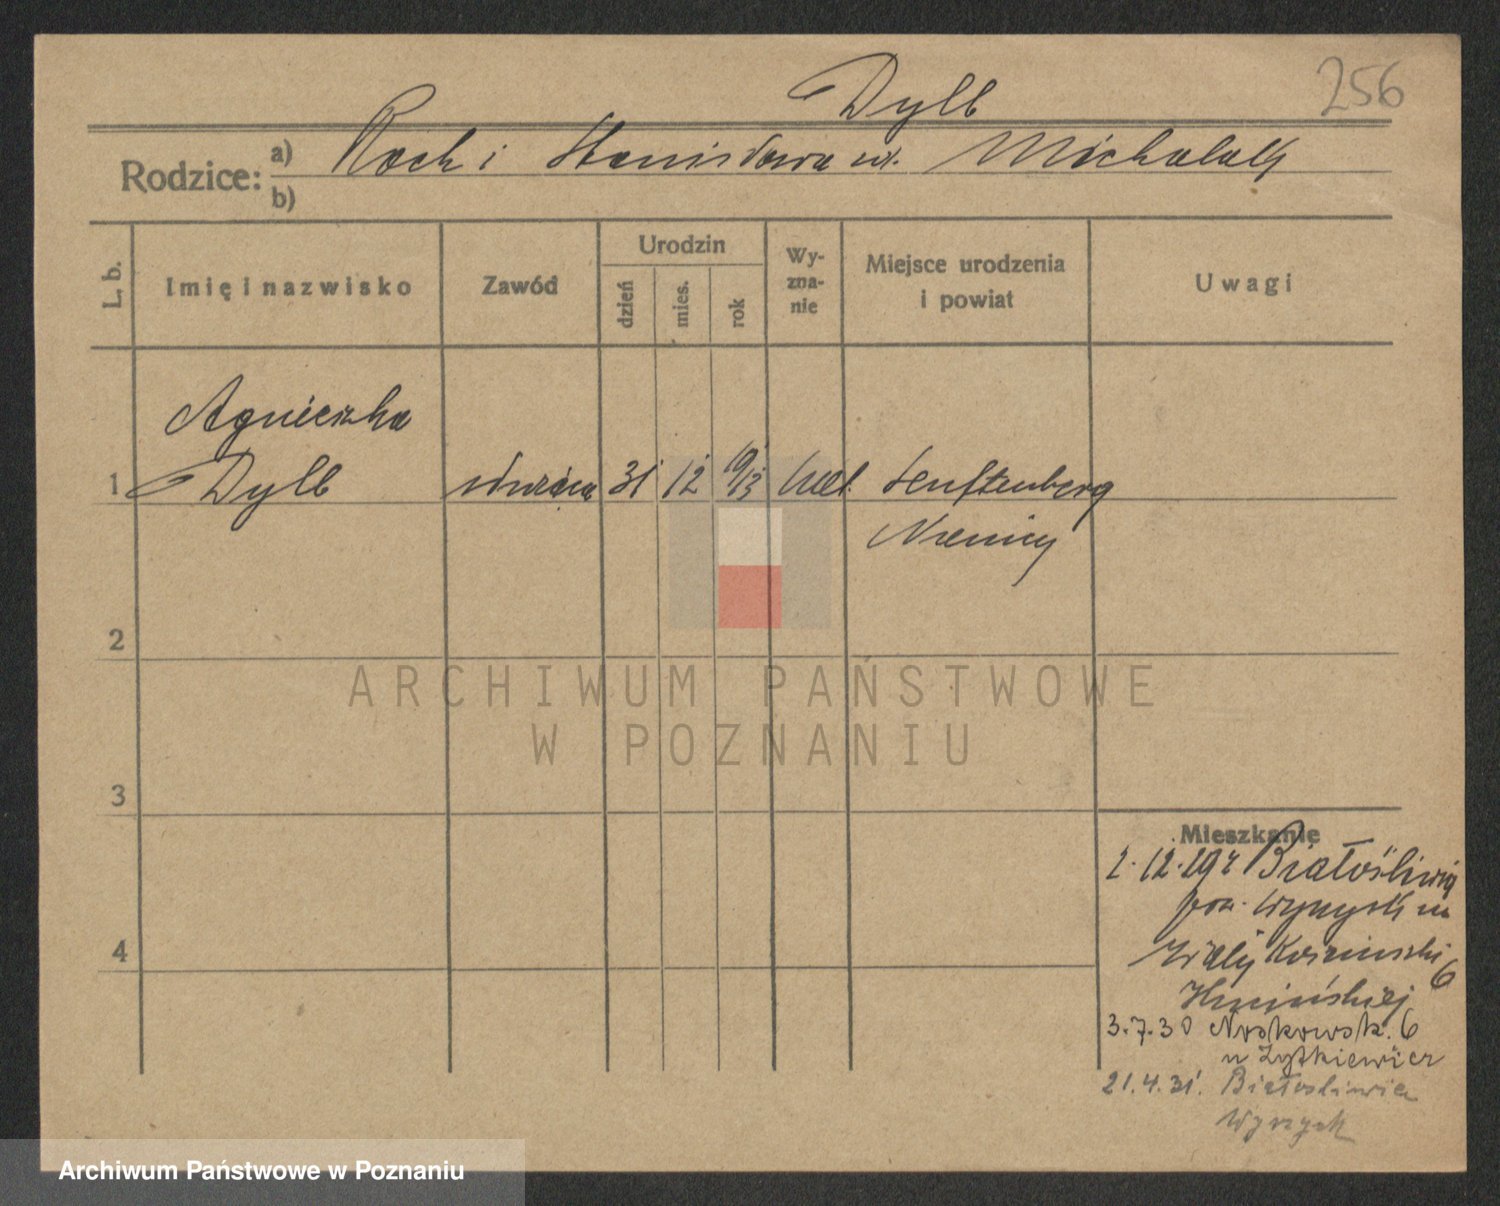 256
Dylb
Rodzice: a) Roch i Stanisława ur. Michalak
b)
L. b. Imię i nazwisko Zawód Urodzin dzień mies. rok Wy-zna-nie Miejsce urodzenia i powiat Uwagi
Agnieszka
1 Dylb służąca 31 12 913 kat. Senftenberg
Niemcy
2
ARCHIWUM PAŃSTWOWE
W POZNANIU
3
Mieszkanie
2.12.29 z Białośliwia
pow. Wyrzysk
6
3.7.30 Noskowsk. 6
u Żytkiewicz
21.4.31. Białośliwie
Wyrzysk
4
Archiwum Państwowe w Poznaniu